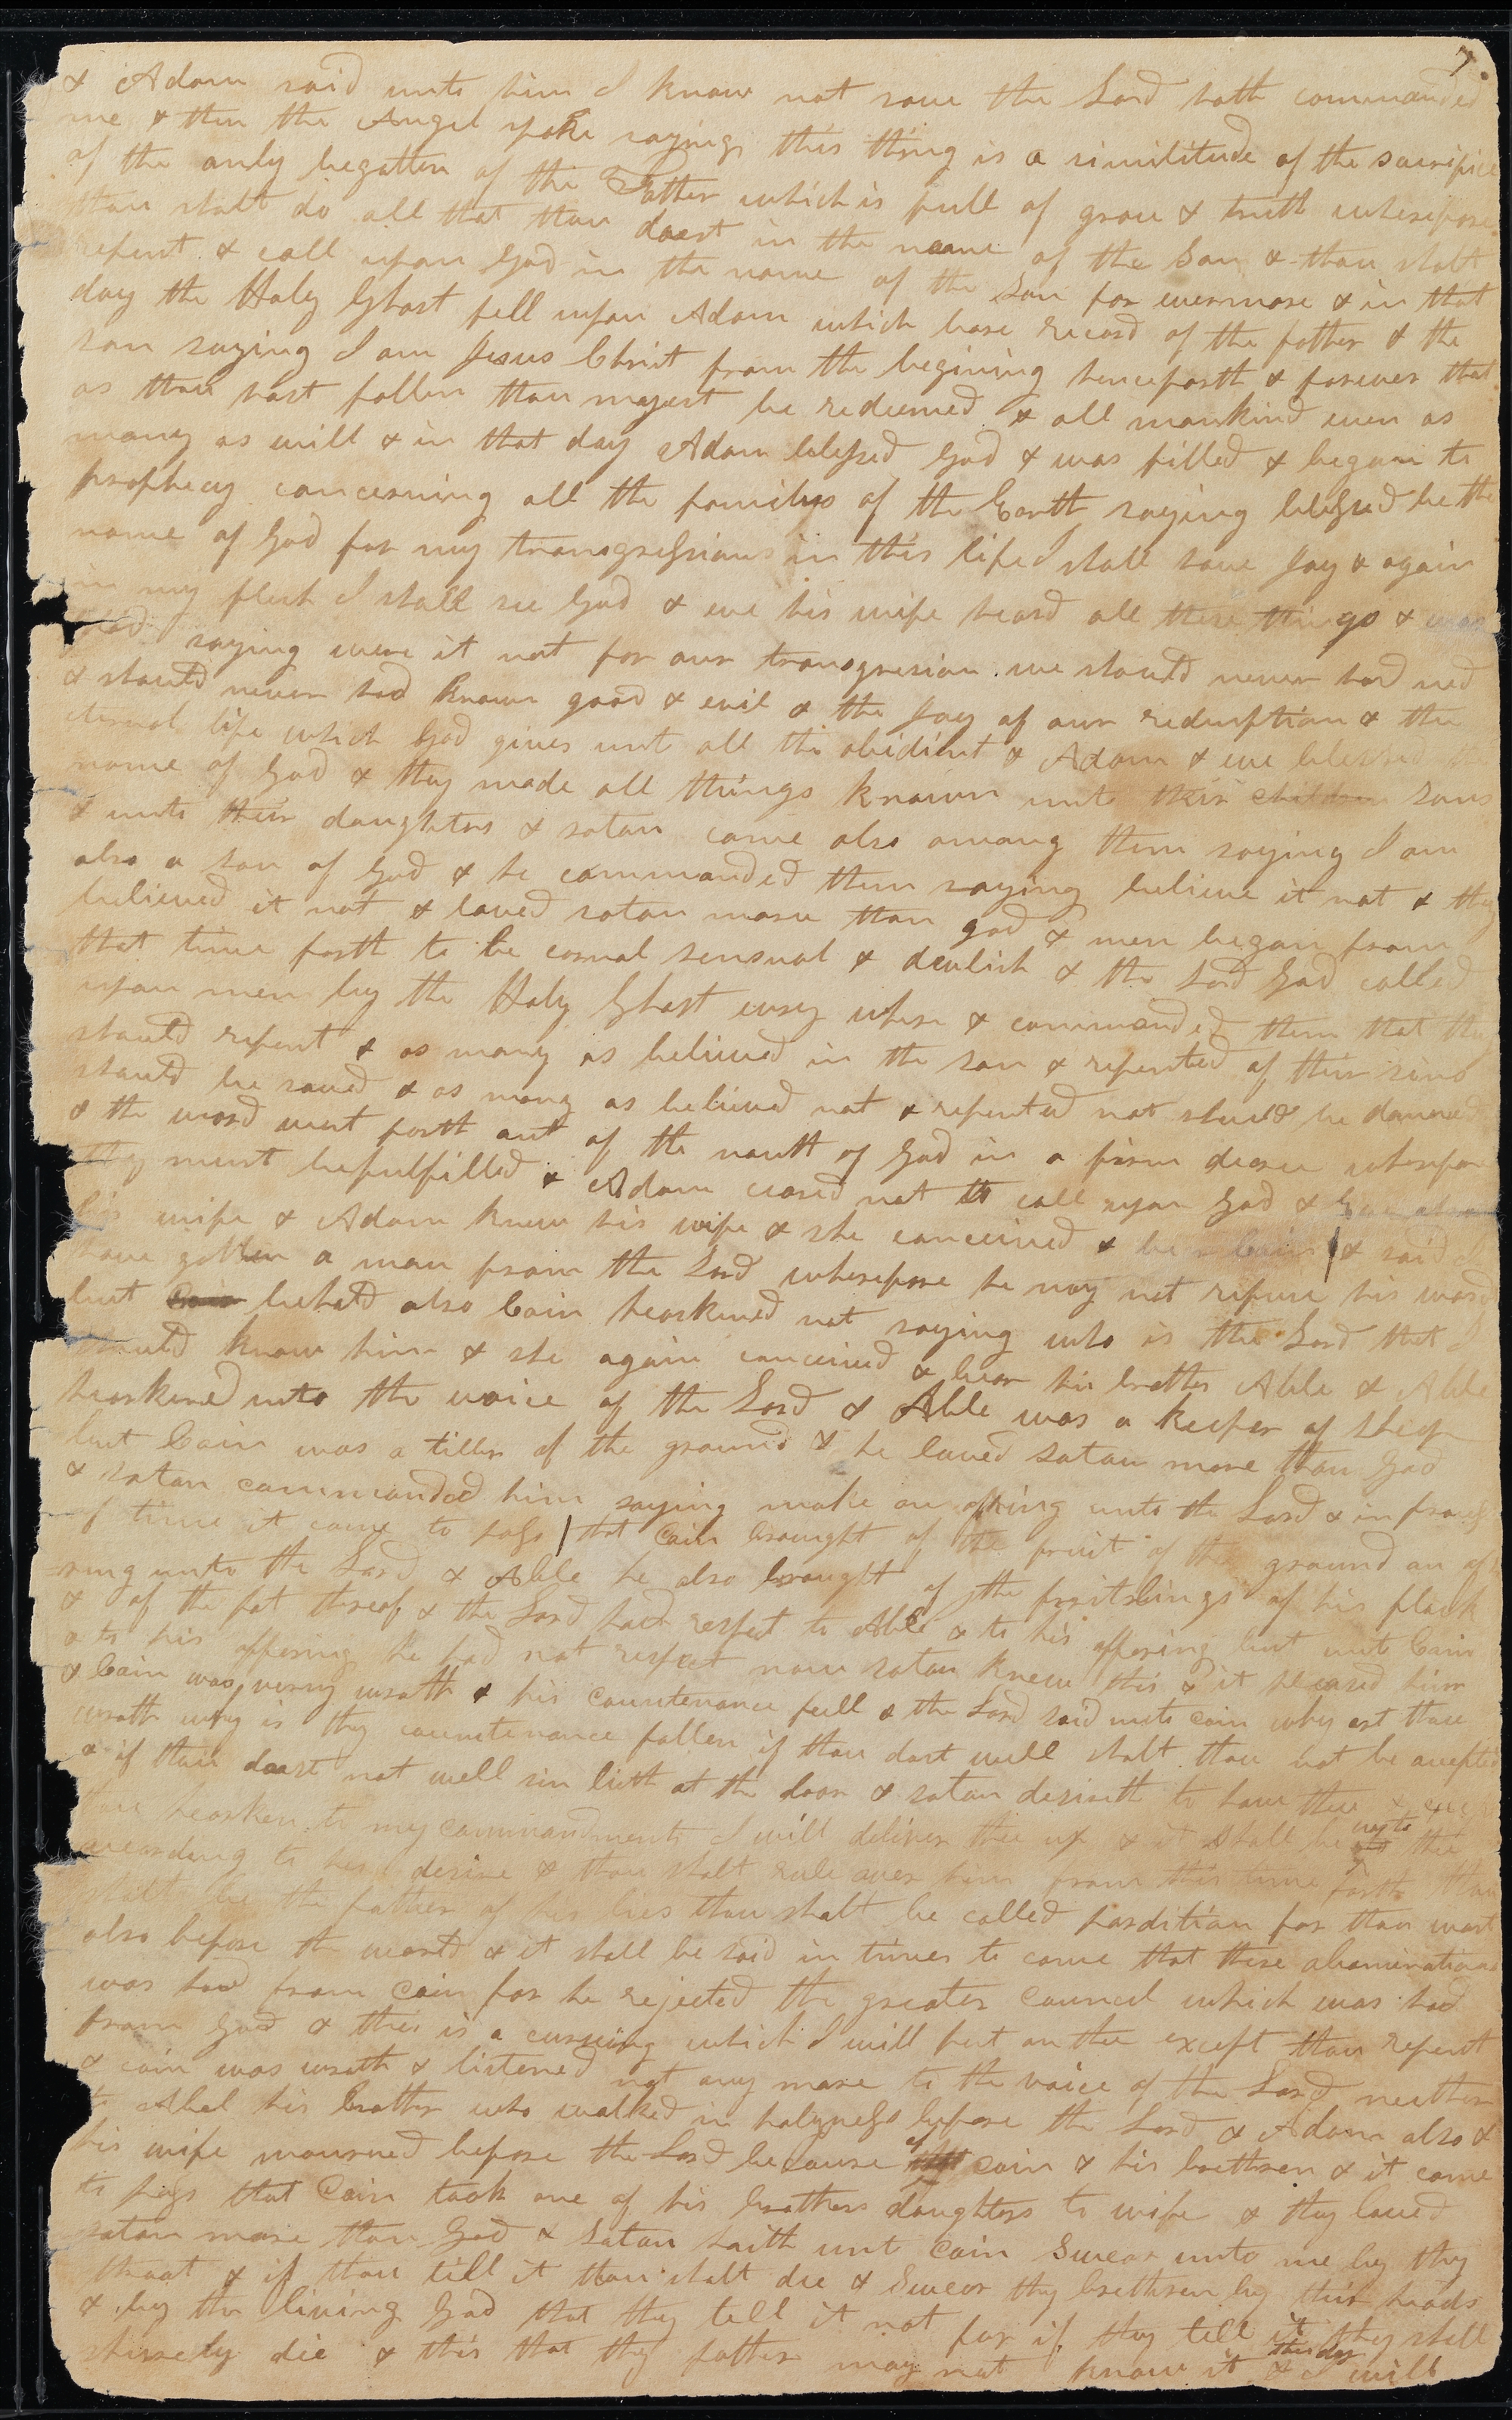 7.
& Adam said unto him I know not save the Lord hath commanded
me & then the Angel spoke saying this thing is a similitude of the sacrifice
of the only begotten of the Father which is full of grace & truth wherefore
thou shalt do all that thou doest in the name of the Son & thou shalt
repent & call upon God in the name of the Son for evermore & in that
day the Holy Ghost fell upon Adam which bore record of the father & the
son saying I am Jesus Christ from the begining henceforth & forever that
as thou hast fallen thou mayest be redeemed & all mankind even as
many as will & in that day Adam blessed God & was filled & began to
prophecy concerning all the familys of the Earth saying blessed be the
name of God for my transgressions in this life I shall have Joy & again
in my flesh I shall see God & eve his wife heard all these things & was
glad saying were it not for our transgresion we should never had seed
& should never had known good & evil & the Joy of our redemption & the
eternal life which God gives unt all the obidient & Adam & eve blessed the
name of God & they made all things known unto their children sons
& unto their daughters & satan came also among them saying I am
also a son of God & he commanded them saying believe it not & they
believed it not & loved satan more than god & men began from
that time forth to be carnal sensual & devlish & the Lord God called
upon men by the Holy Ghost evry where & commanded them that they
should repent & as many as believed in the son & repented of their sins
should be saved & as many as believed not & repented not should be damned
& the word went forth out of the mouth of God in a firm decree wherefore
they must be fulfilled & Adam ceased not to call upon God & Eve also
his wife & Adam knew his wife & she conceived & bear Cain & said I
have gotten a man from the Lord wherefore he may not refuse his word
but Cain behold also Cain hearkened not saying who is the Lord that I
should know him & she again conceived & bear his brother Able & Able
hearkened unto the voice of the Lord & Able was a keeper of sheep
but Cain was a tiller of the ground & he loved satan more than God
& satan commanded him saying make an offring unto the Lord & in process
of time it came to pass that Cain brought of the fruit of the ground an offe
ring unto the Lord & Able he also brought of the firstlings of his flock
& of the fat thereof & the Lord had respect to Able & to his offering but unto Cain
& to his offering he had not respect now satan knew this & it pleased him
& Cain was verry wrath & his countenance fell & the Lord said unto Cain why art thou
wrath why is thy countenance fallen if thou dost well shalt thou not be accepted
& if thou doest not well sin lieth at the door & satan desireth to have thee & except
thou hearken to my commandments I will deliver thee up & it shall be unto thee
according to his desire & thou shalt rule over him from this time forth thou
shalt be the father of his lies thou shalt be called pardition for thou wast
also before the world & it shall be said in times to come that these abominations
was had from Cain for he rejected the greater council which was had
from God & this is a cursing which I will put on thee except thou repent
& cain was wrath & listened not any more to the voice of the Lord neither
to Abel his brother who walked in holyness before the Lord & Adam also &
his wife mourned before the Lord because of cain & his brethren & it came
to pass that Cain took one of his brothers daughters to wife & they loved
satan more than God & Satan saith unt Cain Swear unto me by thy
throat & if thou tell it thou shalt die & Swear thy brethren by their heads
& by the living God that they tell it not for if they tell it they shall
shurely die & this that thy father may not know it & this day I will